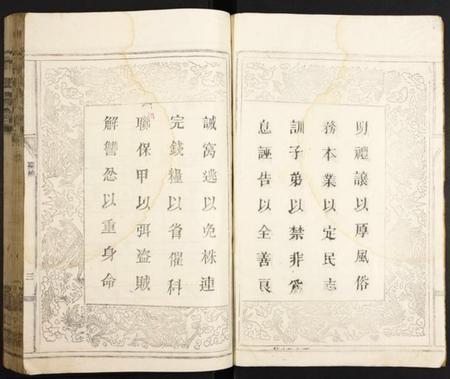 明禮讓以厚風俗
務本業以定民志
訓子弟以禁非為
息誣告以全善良
誡窩逃以免株連
完錢糧以省催科
聯保甲以弭盜賊
解讐忿以重身命
三